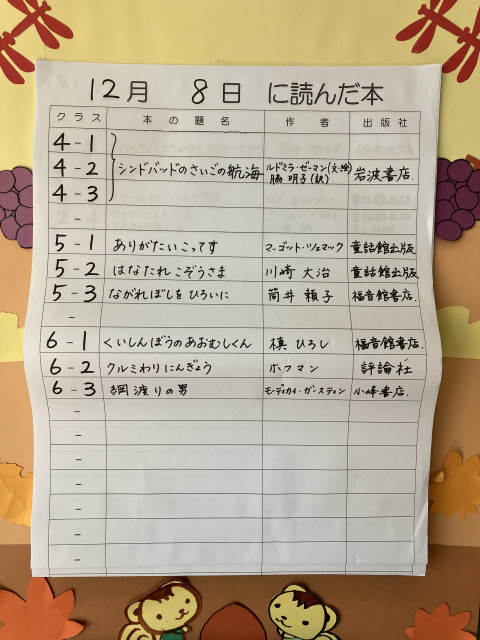 12月 8日 に読んだ本
クラス 本の題名 作者 出版社
4-1
4-2 シンドバッドのさいごの航海 ルドミラ・ゼーマン(文・絵) 脇 明子(訳) 岩波書店.
4-3
-
5-1 ありがたいこってす マーゴット・ツェマック 童話館出版
5-2 はなたれこぞうさま 川崎 大治 童話館出版
5-3 ながれぼしをひろいに 筒井 頼子 福音館書店.
-
6-1 くいしんぼうのあおむしくん 槙 ひろし 福音館書店.
6-2 クルミわりにんぎょう ホフマン 評論社
6-3 綱渡りの男 モーディカイ・ガースティン 小峰書店.
-
-
-
-
-
-
-